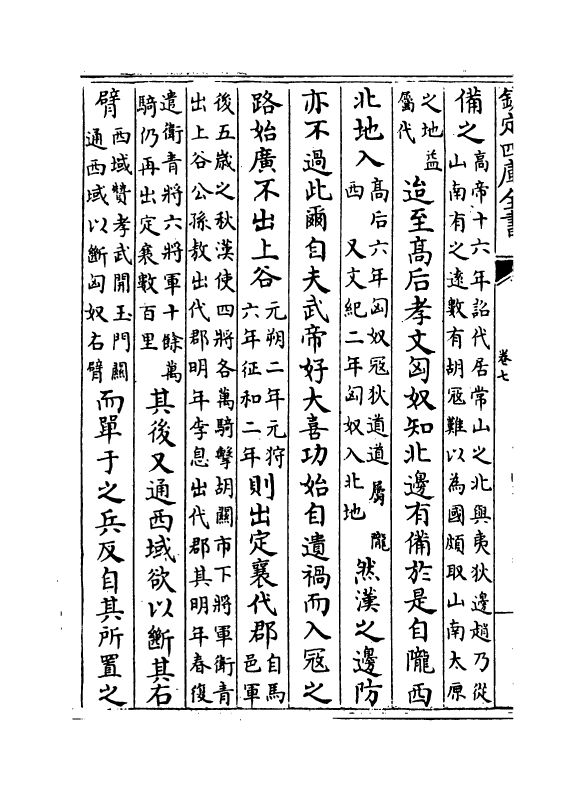 欽定四庫全書
卷七
備之高帝十六年詔代居常山之北與夷狄邊趙乃從
山南有之遠數有胡寇難以為國頗取山南太原
之地益
屬代
迨至高后孝文匈奴知北邊有備於是自隴西
北地入高后六年匈奴寇狄道道屬隴
西 又文紀二年匈奴入北地
然漢之邊防
亦不過此爾自夫武帝好大喜功始自遺禍而入寇之
路始廣不出上谷元朔二年元狩
六年征和二年
則出定襄代郡自馬
邑軍
後五歲之秋漢使四將各萬騎擊胡關市下將軍衛青
出上谷公孫敖出代郡明年李息出代郡其明年春復
遣衛青將六將軍十餘萬
騎仍再出定襄數百里
其後又通西域欲以斷其右
臂西域贊孝武開玉門關
通西域以斷匈奴右臂
而單于之兵反自其所置之